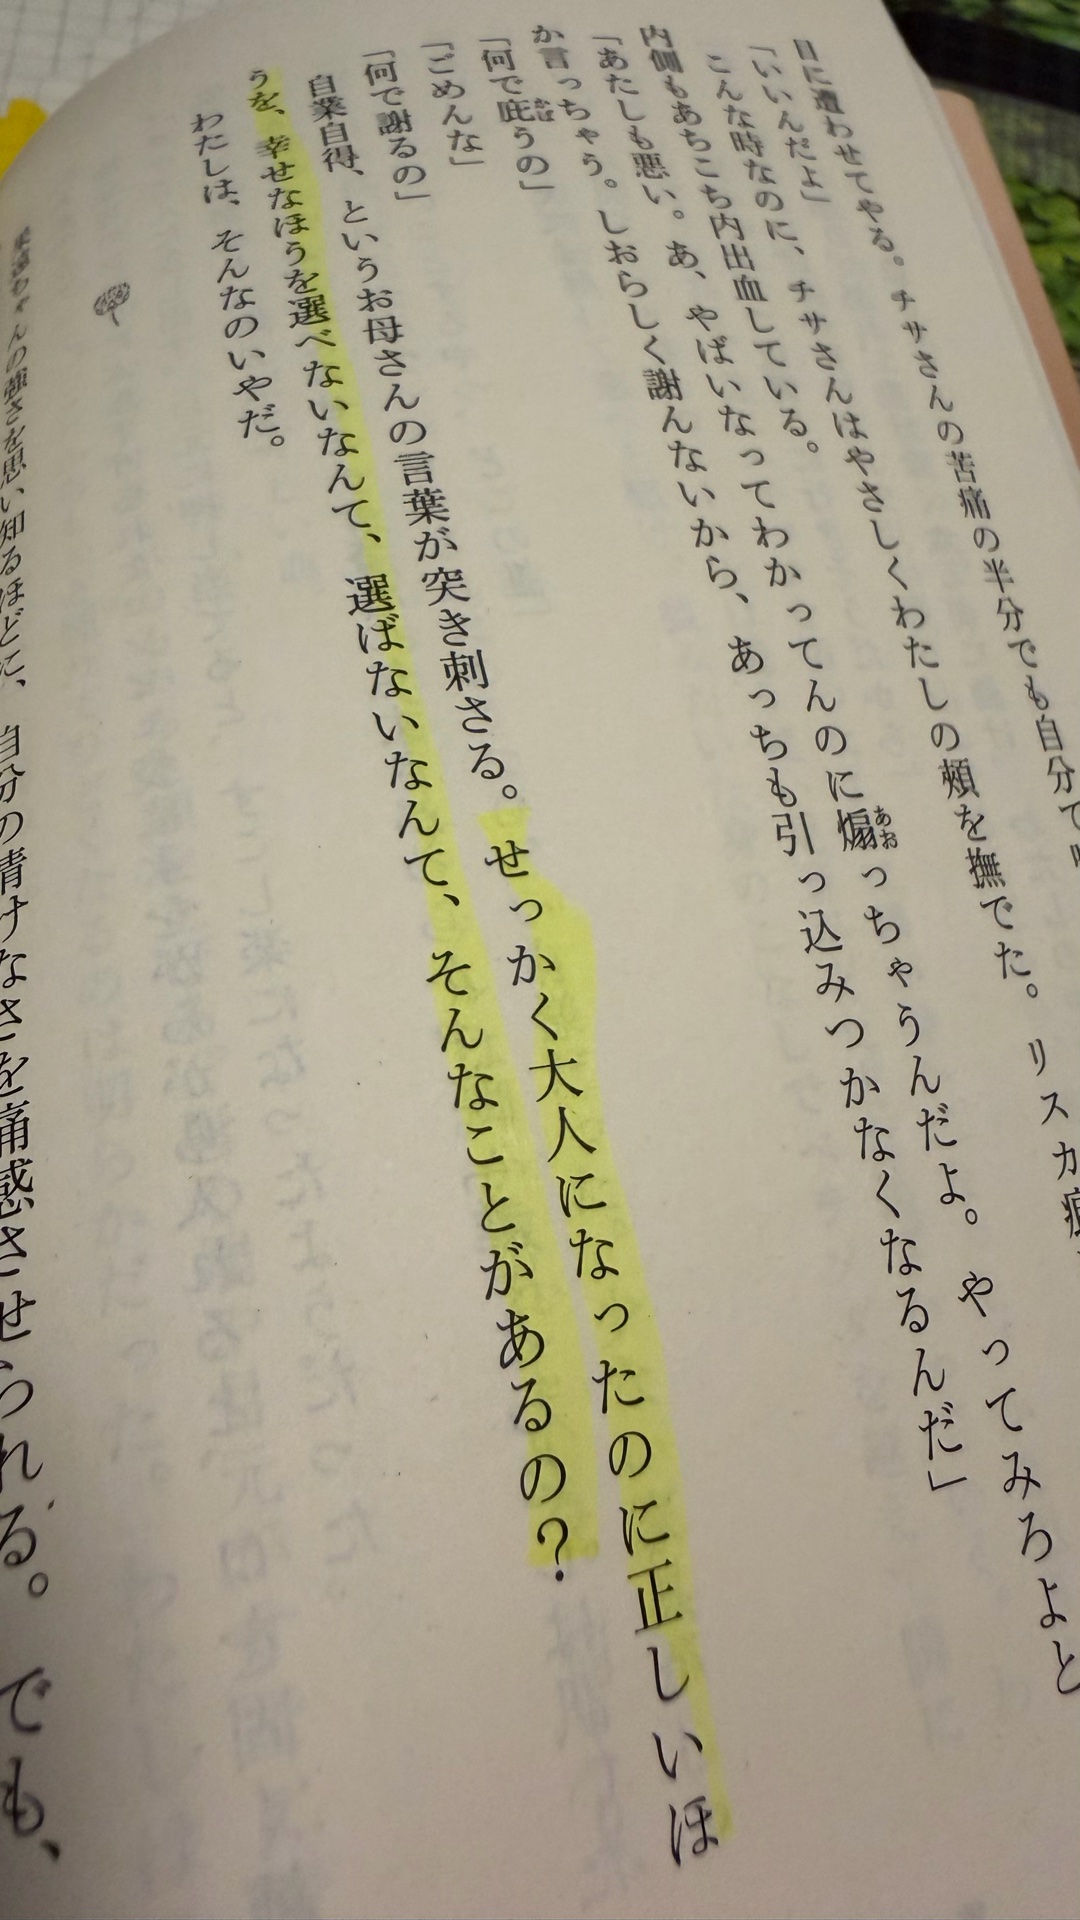 目に遭わせてやる。チサさんの苦痛の半分でも自分で
「いいんだよ」
こんな時なのに、チサさんはやさしくわたしの頰を撫でた。リスカ痕
内側もあちこち内出血している。
「あたしも悪い。あ、やばいなってわかってんのに煽っちゃうんだよ。やってみろよと
か言っちゃう。しおらしく謝んないから、あっちも引っ込みつかなくなるんだ」
「何で庇うの」
「ごめんな」
「何で謝るの」
自業自得、というお母さんの言葉が突き刺さる。せっかく大人になったのに正しいほ
うを、幸せなほうを選べないなんて、選ばないなんて、そんなことがあるの？
わたしは、そんなのいやだ。
ちゃんの強さを思い知るほどに、自分の情けなさを痛感させられる。でも、